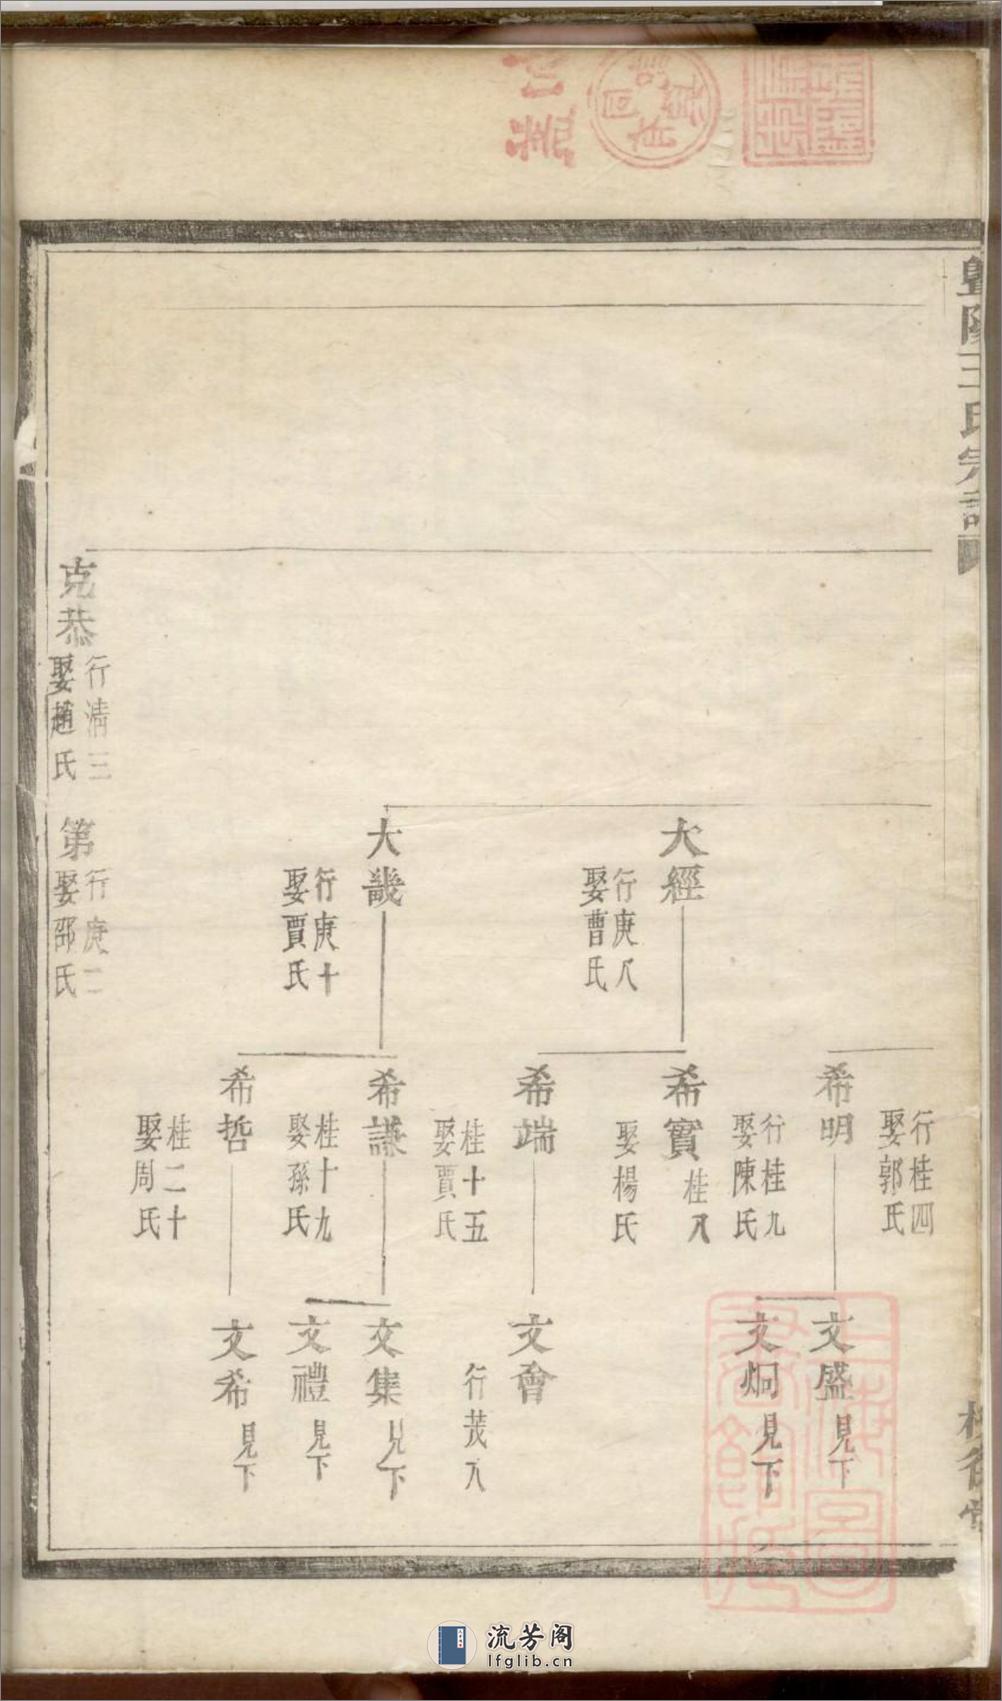 暨陽王氏宗譜
行桂四
娶郭氏
希明
行桂九
娶陳氏
文盛
見下
文炯
見下
大經
行庚八
娶曹氏
希實
桂八
娶楊氏
希端
桂十五
娶賈氏
文會
行茂八
大畿
行庚十
娶賈氏
希謙
桂十九
娶孫氏
文集
見下
文禮
見下
希哲
桂二十
娶周氏
文希
見下
克恭
行清三
娶趙氏
第
行庚二
娶邵氏
流芳阁
lfglib.cn